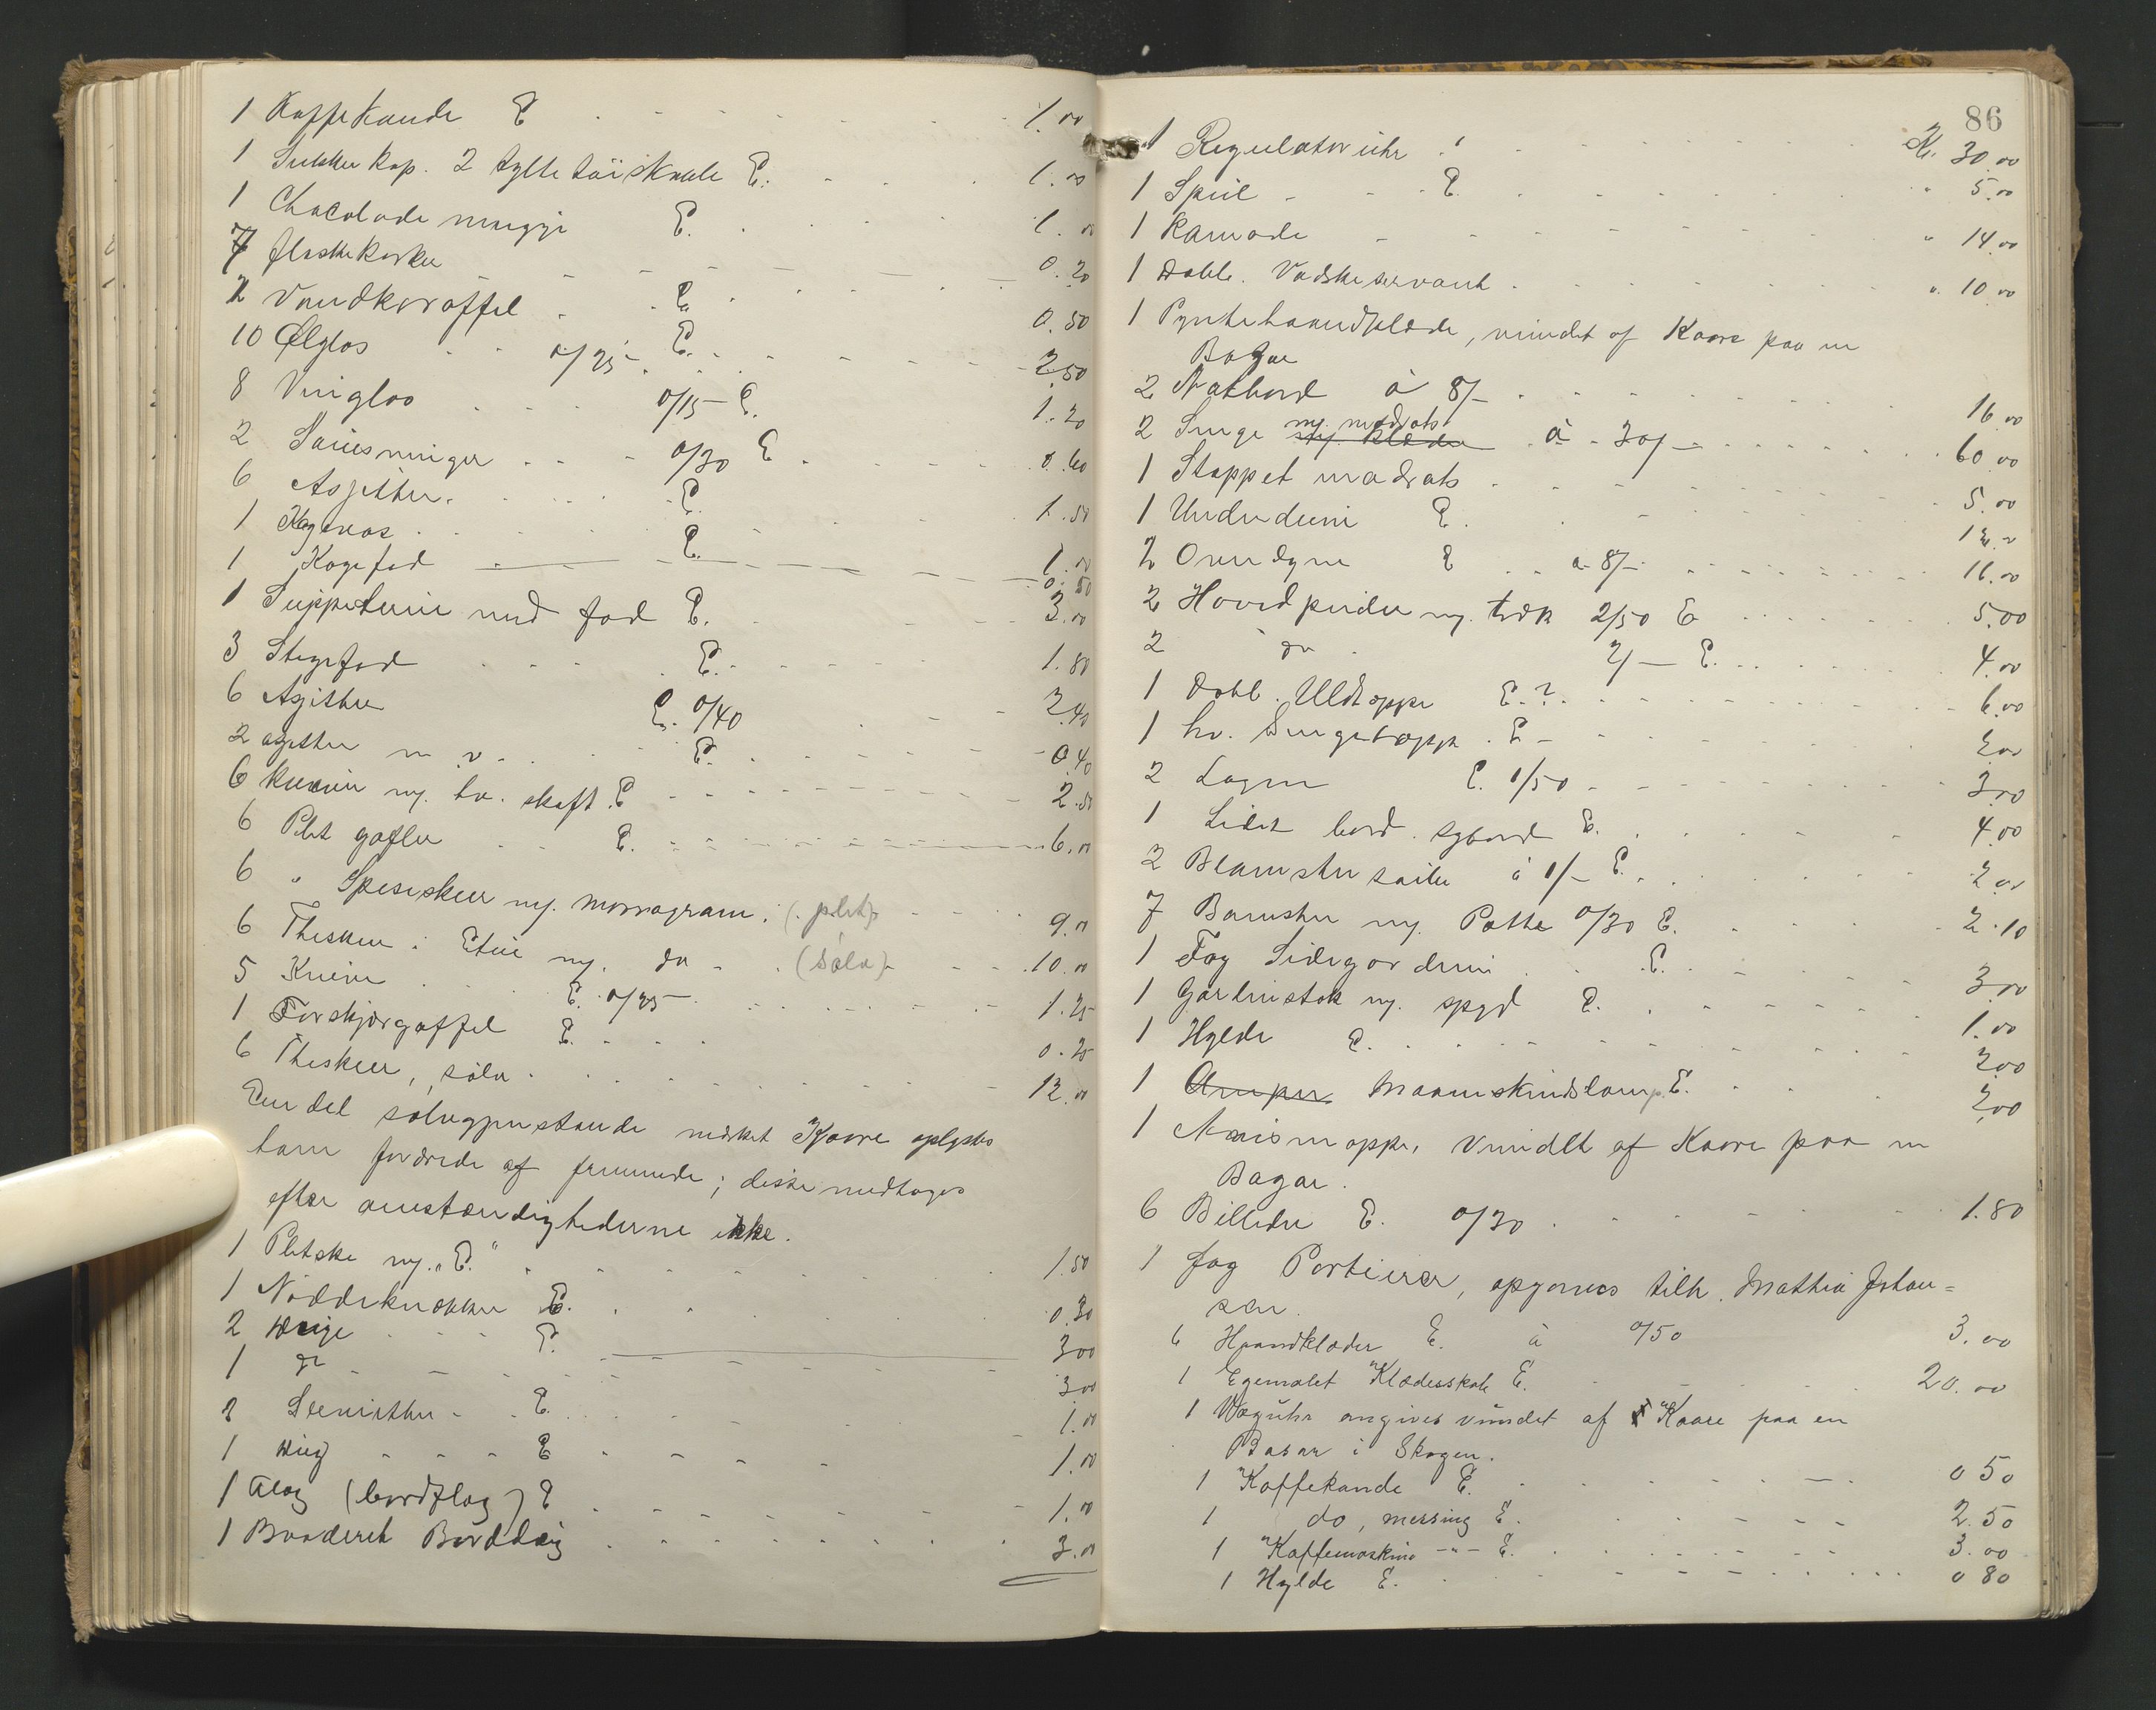 1 Kaffekande E 1.00
1 Sukker kop. 2 sylte töiskaale E. 1.00
1 Chocolade mugge E. 1.00
7 flaskekorker 0.20
2 Vandkaraffel E 0.50
10 Ølglas 0/25 E. 2.50
8 Vinglas 0/15 E. 1.20
2 0/30 E 0.60
6 Asjetter. E. 1.50
1 E. 1.00
1 Kagefad 0.50
1 Suppeterin med fad E. 3.00
3 Stegefad E. 1.80
6 Asjetter E. 0/40 2.40
2 asjetter E. 0.40
6 kniver m. hv. skaft. E 2.50
6 Plet gafler E. 6.00
6 " Spiseskeer m. monogram. (plet) 9.00
6 Theskeer i Etui m. do (Sølv) 10.00
5 Kniver E. 0/25 1.25
1 Forskjærgaffel E. 0.25
6 Theskeer, sølv 12.00
Een del sølvgjenstande mærket Kaare oplystes
ham forærede af fremmede; disse medtages
efter omstændighederne ikke.
1 Pletske m. "E." 1.50
1 Nöddeknækker E. 0.30
2 Duge E. 3.00
1 do 3.00
2 Servietter E. 1.00
1 Dug E 1.00
1 Flag (bordflag) E 1.00
1 Broderet Borddug 3.00
86
1 Regulatoruhr Kr. 30.00
1 Speil E. " 5.00
1 Kamode " 14.00
1 Dobb. Vadskeservant " 10.00
1 Pyntehaandklæde, vundet af Kaare paa en
Bazar
2 Natbord à 8/- 16.00
m. madrats
2 Senge à 30/- 60.00
1 Stoppet madrats 5.00
1 Underdyne E. 12.00
2 Overdyne E à 8/- 16.00
2 Hovedpuder m. træk 2/50 E 5.00
2 do 2/- E. 4.00
1 Dobl. Uldtæppe E.? 6.00
1 hv. Sengetæppe E 2.00
2 Lagen E. 1/50 3.00
1 Lidet bord. sybord E. 4.00
2 Blomster söiler à 1/- E. 2.00
7 Blomster m. Potte 0/30 E. 2.10
1 Fag Sidegardiner E. 3.00
1 Gardinstok m. spyd E. 1.00
1 Hylde E. 2.00
1 Maaneskindslampe E. 2.00
1 Avismappe, Vundet af Kaare paa en
Bazar.
6 Billeder E. 0/30 1.80
1 fag Portierer, opgives tilh. Mathia Johan=
sen.
6 Haandklæder E. à 0/50 3.00
1 Egemalet Klædesskab E. 20.00
1 Vægùhr angives vùndet af Kaare paa en
Basar i Skogen.
1 Kaffekande E. 0 50
1 do, messing E. 2.50
1 Kaffemaskine -"- E. 3.00
1 Hylde E. 0 80